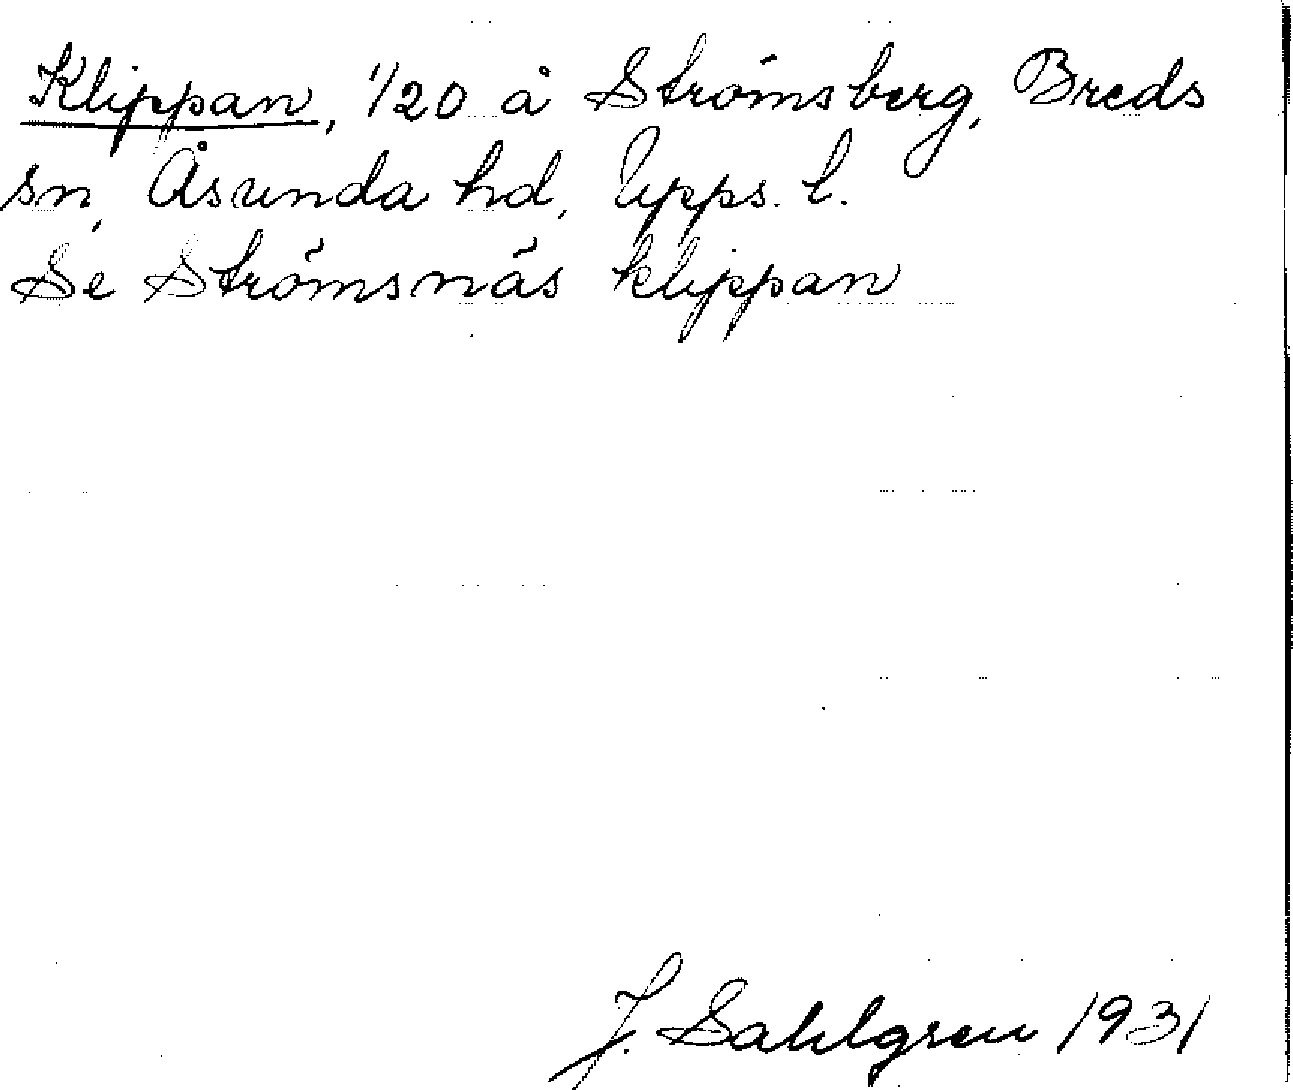 Klippan, 1/20 å Strömsberg, Breds
sn, Åsunda hd, Upps. l.
Se Strömsnäs klippan
J. Sahlgren 1931